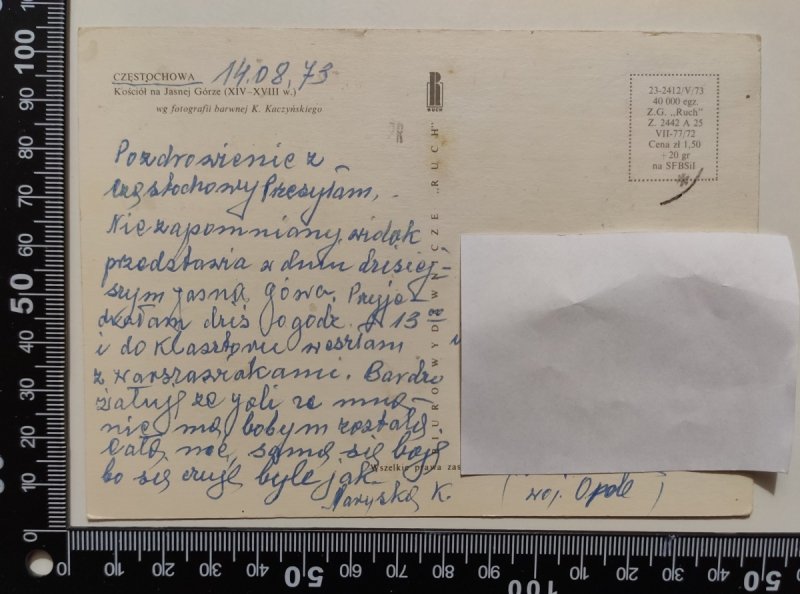 CZĘSTOCHOWA 14.08.73
Kościół na Jasnej Górze (XIV–XVIII w.)
wg fotografii barwnej K. Kaczyńskiego
RUCH
23-2412/V/73
40 000 egz.
Z.G. „Ruch"
Z. 2442 A 25
VII-77/72
Cena zł 1,50
+ 20 gr
na SFBSiI
Pozdrowienie z
Częstochowy Przesyłam.
Niezapomniany widok
przedstawia w dniu dzisiej-
szym jasna góra. Przyje-
chałam dziś o godz. 13
i do klasztoru weszłam
z warszawiakami. Bardzo
żałuję, że Joli ze mną
nie ma bobym została
całą noc, sama się boję
bo się czuję byle jak.
K.
(woj. Opole)
BIURO WYDAWNICZE „RUCH"
Wszelkie prawa zas
0 10 20 30 40 50 60 70 80 90 100
0 10 20 30 40 50 60 70 80 90 100 10 20 30 40